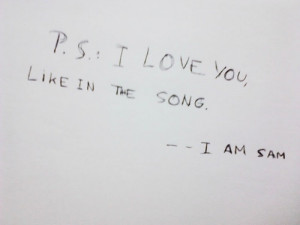 P.S.: I LOVE YOU,
LIKE IN THE SONG.
-- I AM SAM